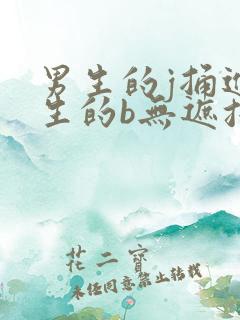 男生的j捅进
生的b無遮挡
花二寶
未任同意禁止转载